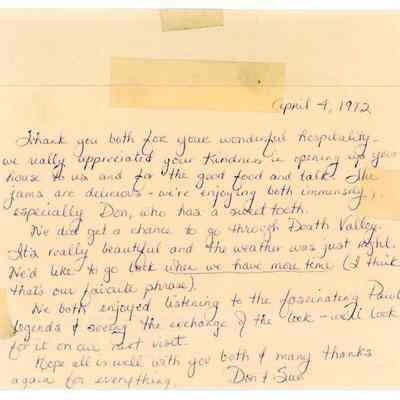 April 4, 1972
Thank you both for your wonderful hospitality -
we really appreciated your kindness in opening up your
house to us and for the good food and talk. The
jams are delicious - we're enjoying both immensly,
especially Don, who has a sweet tooth.
We did get a chance to go through Death Valley.
It's really beautiful and the weather was just right.
We'd like to go back when we have more time (I think
that's our favorite phrase).
We both enjoyed listening to the fascinating
legends & seeing the exchange of the look - we'll look
for it on our next visit.
Hope all is well with you both & many thanks
again for everything. Don & Sue